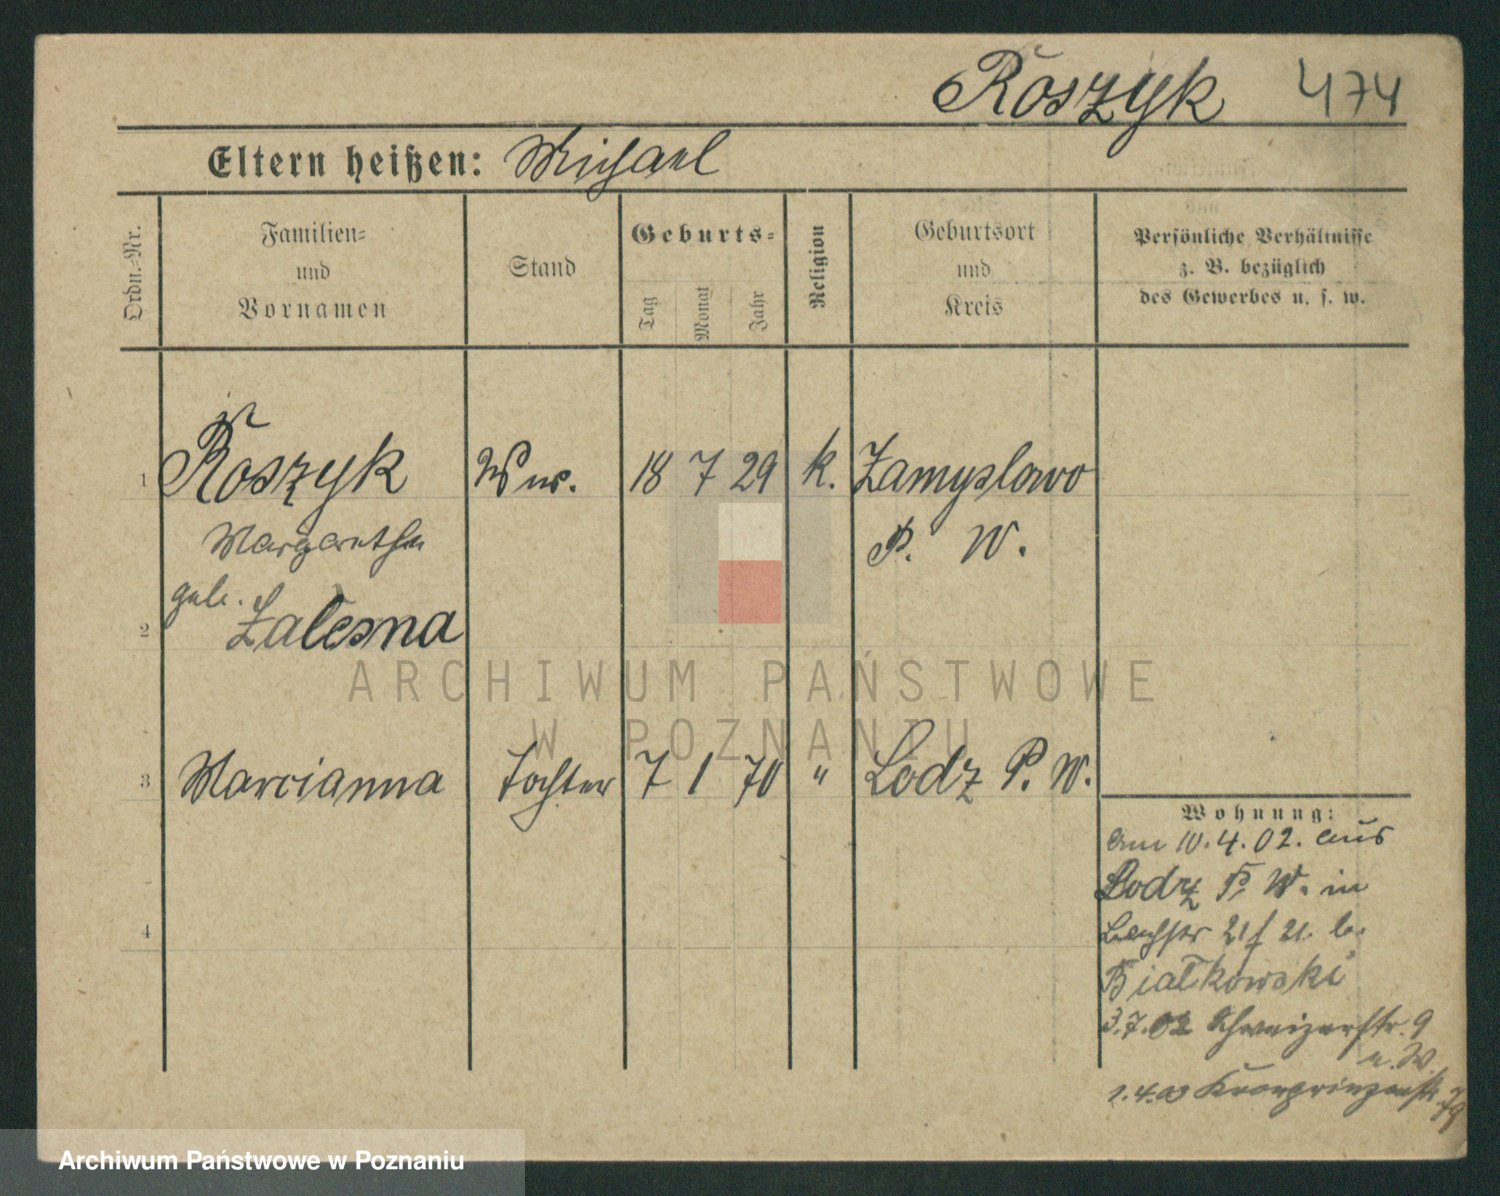 Roszyk 474
Eltern heißen: Michael
Ordn.-Nr.
Familien-
und
Vornamen
Stand
Geburts-
Tag
Monat
Jahr
Religion
Geburtsort
und
Kreis
Persönliche Verhältnisse
z. B. bezüglich
des Gewerbes u. s. w.
1 Roszyk Ww. 18 7 29 k. Zamyslowo
Margaretha P. W.
geb.
2 Zalesna
ARCHIWUM PAŃSTWOWE
W POZNANIU
3 Marcianna Tochter 7 1 70 " Lodz P. W.
Wohnung:
am 10.4.02. aus
Lodz P. W. in
21 b.
Bialkowski
3.7.02 Schweizerstr. 9
n. W.
1.4.03 Kronprinzenstr.
4
Archiwum Państwowe w Poznaniu